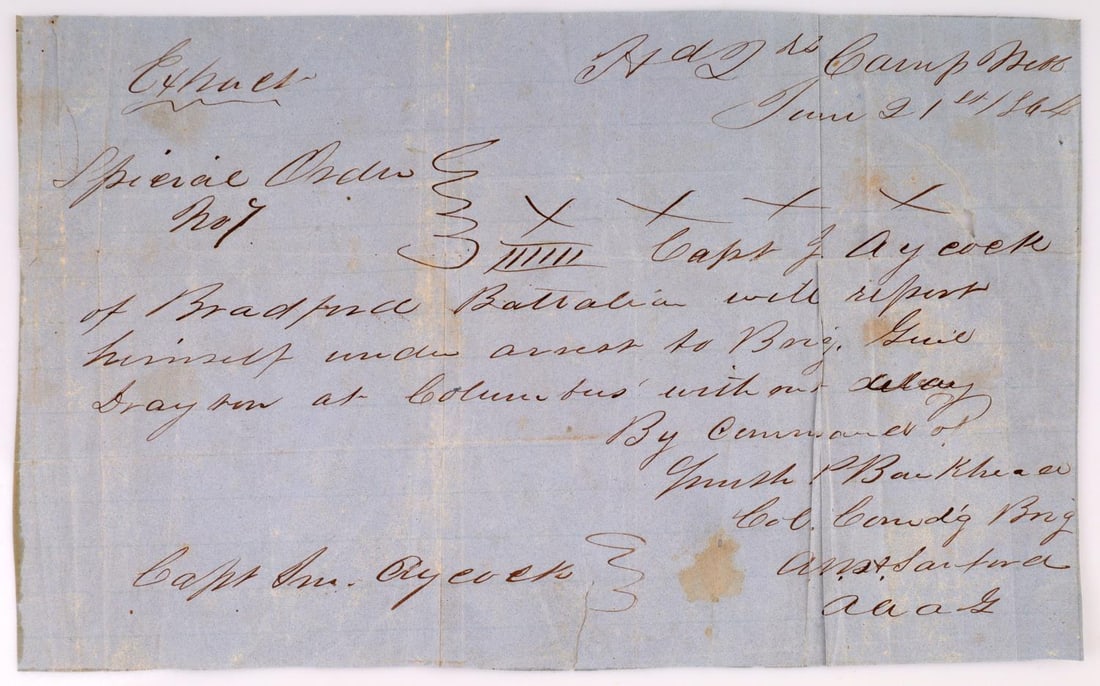 Extract
Hd Qrs Camp
June 21st 1864
Special Order
No 7
X X X X
IIIIII Capt J. Aycock
of Bradford Battalion will report
himself under arrest to Brig. Genl
Drayton at Columbus without delay
By Command of
Smith P Bankhead
Col. Comd'g Brig
Sanford
A A A G
Capt Jno. Aycock